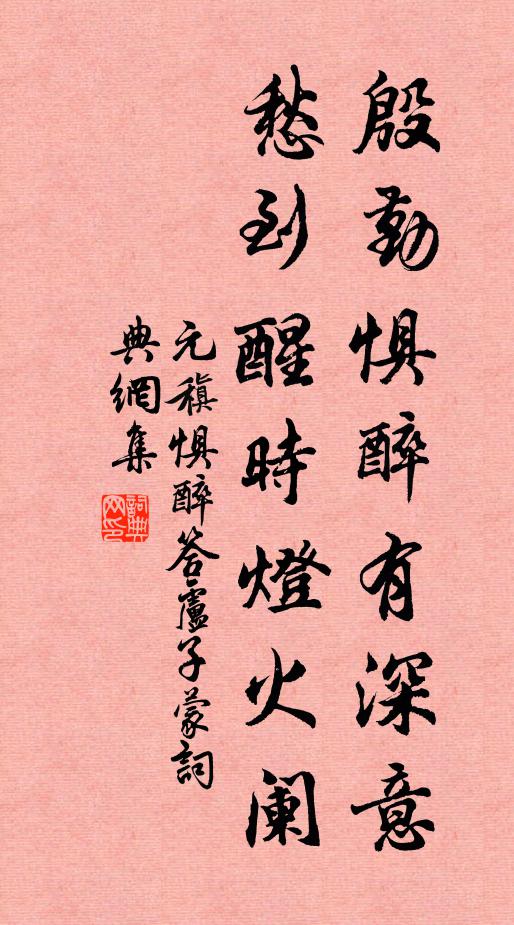 殷勤惧醉有深意
愁到醒時燈火阑
元稹惧醉答盧子蒙詞
典網集
詞典网印